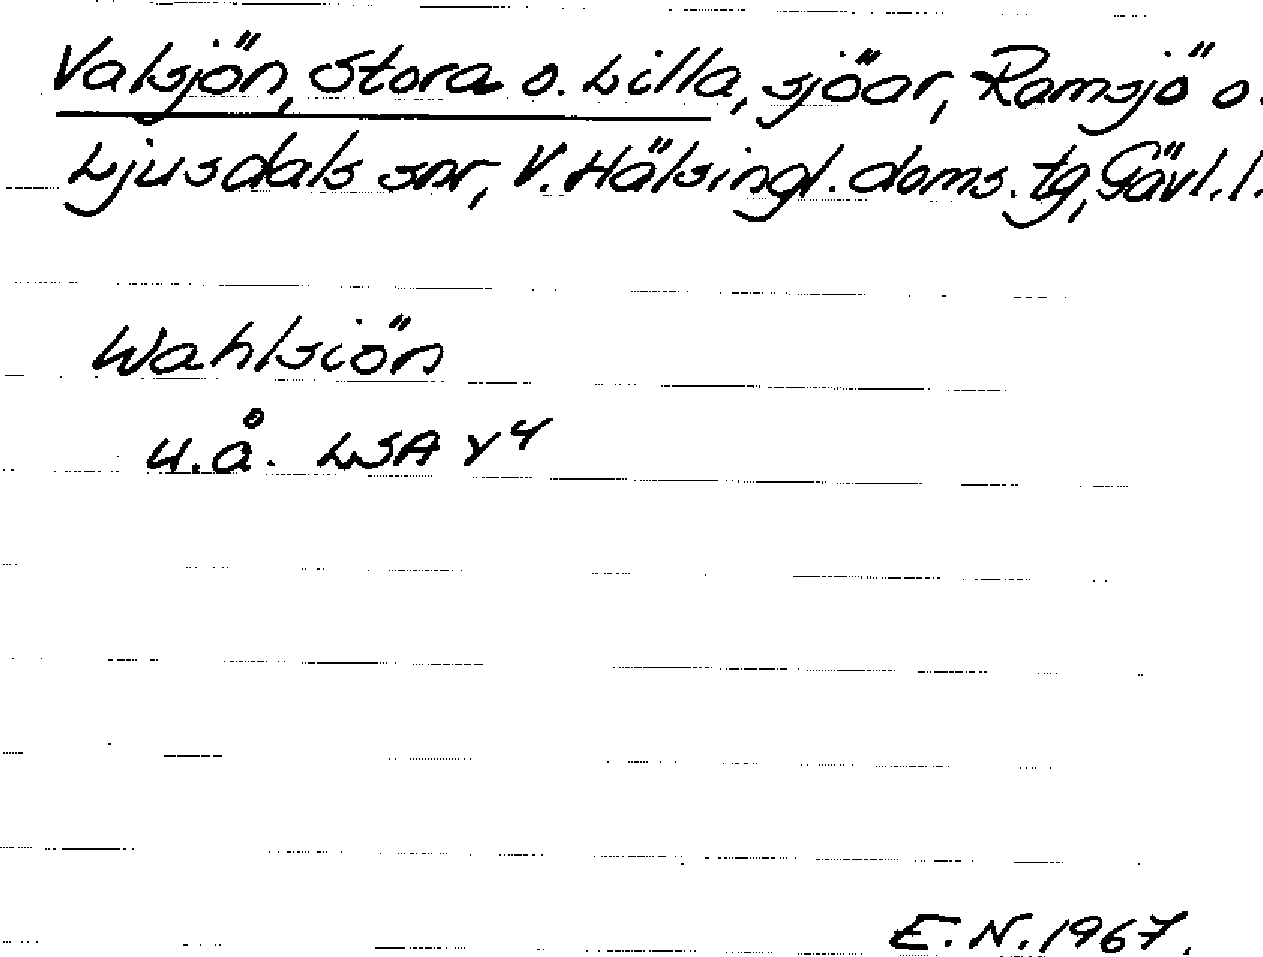 Valsjön, Stora o. Lilla, sjöar, Ramsjö o.
Ljusdals snr, V. Hälsingl. doms. tg, Gävl. l.
Wahlsiön
u.å. LSA Y4
E.N. 1967.